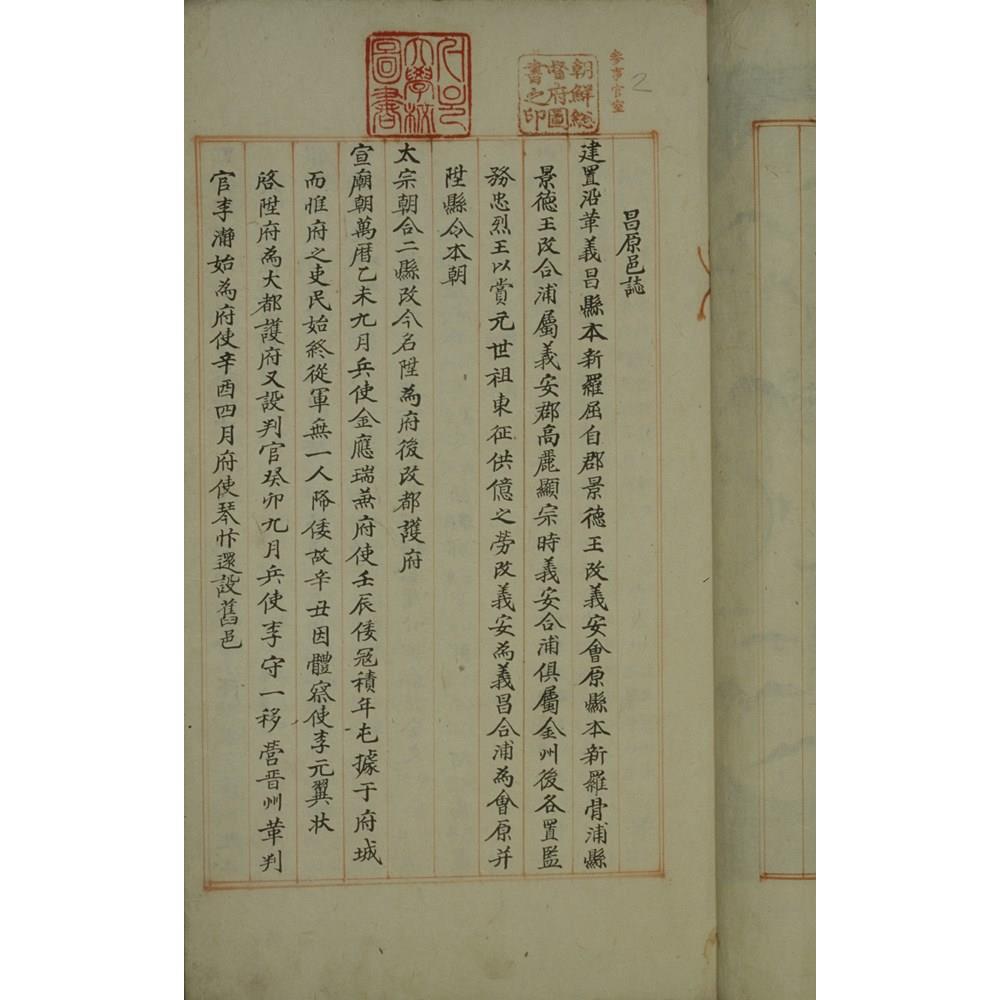 參事官室
2
朝鮮總
督府圖
書之印
서울
大學校
圖書
昌原邑誌
建置沿革義昌縣本新羅屈自郡景德王改義安會原縣本新羅骨浦縣
景德王改合浦屬義安郡高麗顯宗時義安合浦俱屬金州後各置監
務忠烈王以賞元世祖東征供億之勞改義安為義昌合浦為會原并
陞縣令本朝
太宗朝合二縣改今名陞為府後改都護府
宣廟朝萬曆乙未九月兵使金應瑞兼府使壬辰倭冦積年屯據于府城
而惟府之吏民始終從軍無一人降倭故辛丑因體察使李元翼狀
啓陞府為大都護府又設判官癸卯九月兵使李守一移營晋州革判
官李瀞始為府使辛酉四月府使琴忭還設舊邑